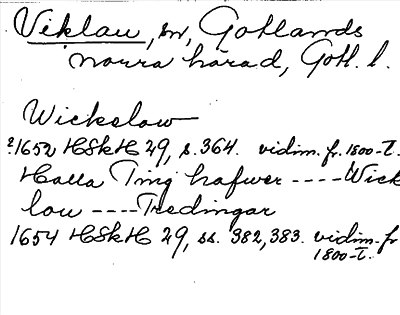 Viklau, sn, Gotlands
norra härad, Gotl. l.
Wickelow
?1652 HSkH 29, s. 364. vidim. fr. 1800-t.
Halla Ting hafwer ---- Wick
lou ---- Tredingar
1654 HSkH 29, ss. 382, 383. vidim. fr
1800-t.